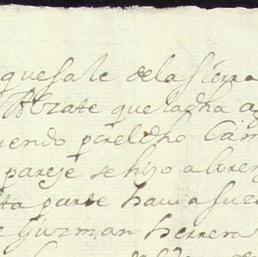 que sale de la sierra
Abzate que la dha a
iendo por el dho Cam
pareje se hizo a loren
ta parte hacia su
e Guzman herrera